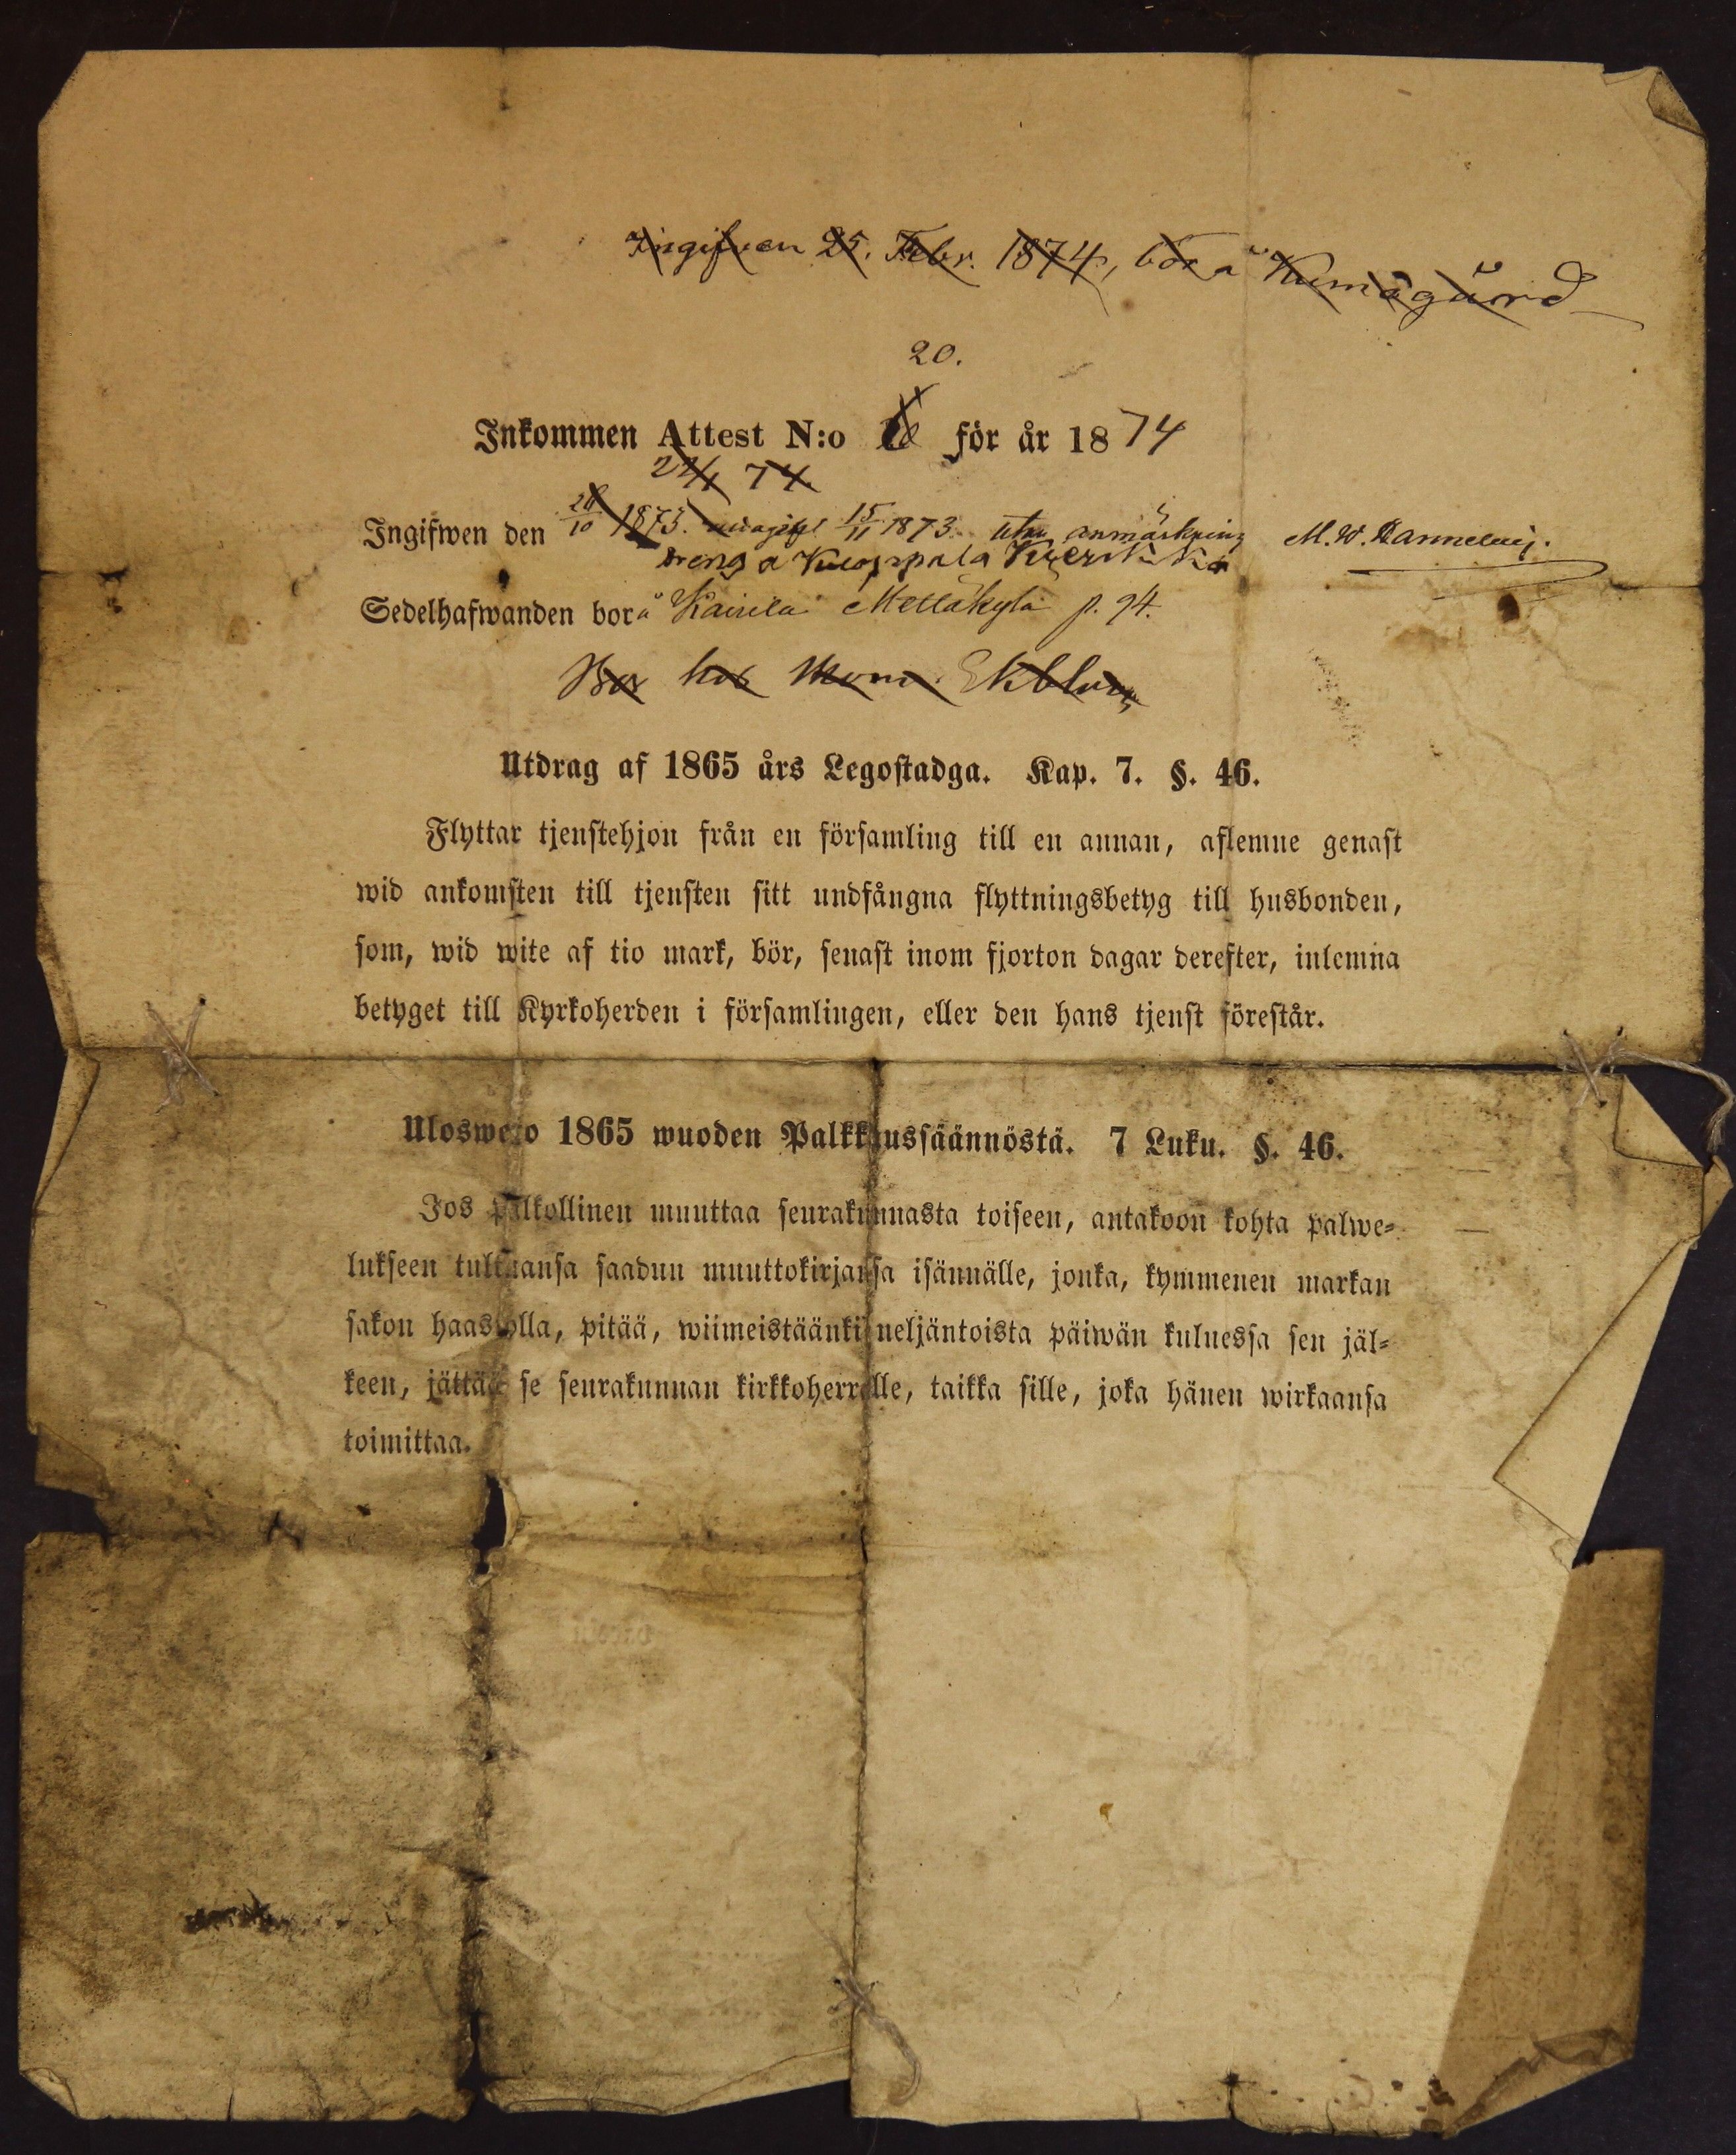 Ingifven 25. Febr. 1874, bor å Kumogård
20.
Inkommen Attest N:o för år 1874
22/1 74
Ingifwen den 28/10 1873. 15/11 1873. utan anmärkning M. W.
dreng å
Sedelhafwanden bor å Kairila Mellakylä p. 94.
Bor hos Ekblom
Utdrag af 1865 års Legostadga. Kap. 7. §. 46.
Flyttar tjenstehjon från en församling till en annan, aflemne genast
wid ankomsten till tjensten sitt undfångna flyttningsbetyg till husbonden,
som, wid wite af tio mark, bör, senast inom fjorton dagar derefter, inlemna
betyget till Kyrkoherden i församlingen, eller den hans tjenst förestår.
Ulosweto 1865 wuoden Palkkaussäännöstä. 7 Luku. §. 46.
Jos palkollinen muuttaa seurakunnasta toiseen, antakoon kohta palwe-
lukseen tultuansa saadun muuttokirjansa isännälle, jonka, kymmenen markan
sakon haastolla, pitää, wiimeistäänki neljäntoista päiwän kuluessa sen jäl-
keen, jättää se seurakunnan kirkkoherralle, taikka sille, joka hänen wirkaansa
toimittaa.